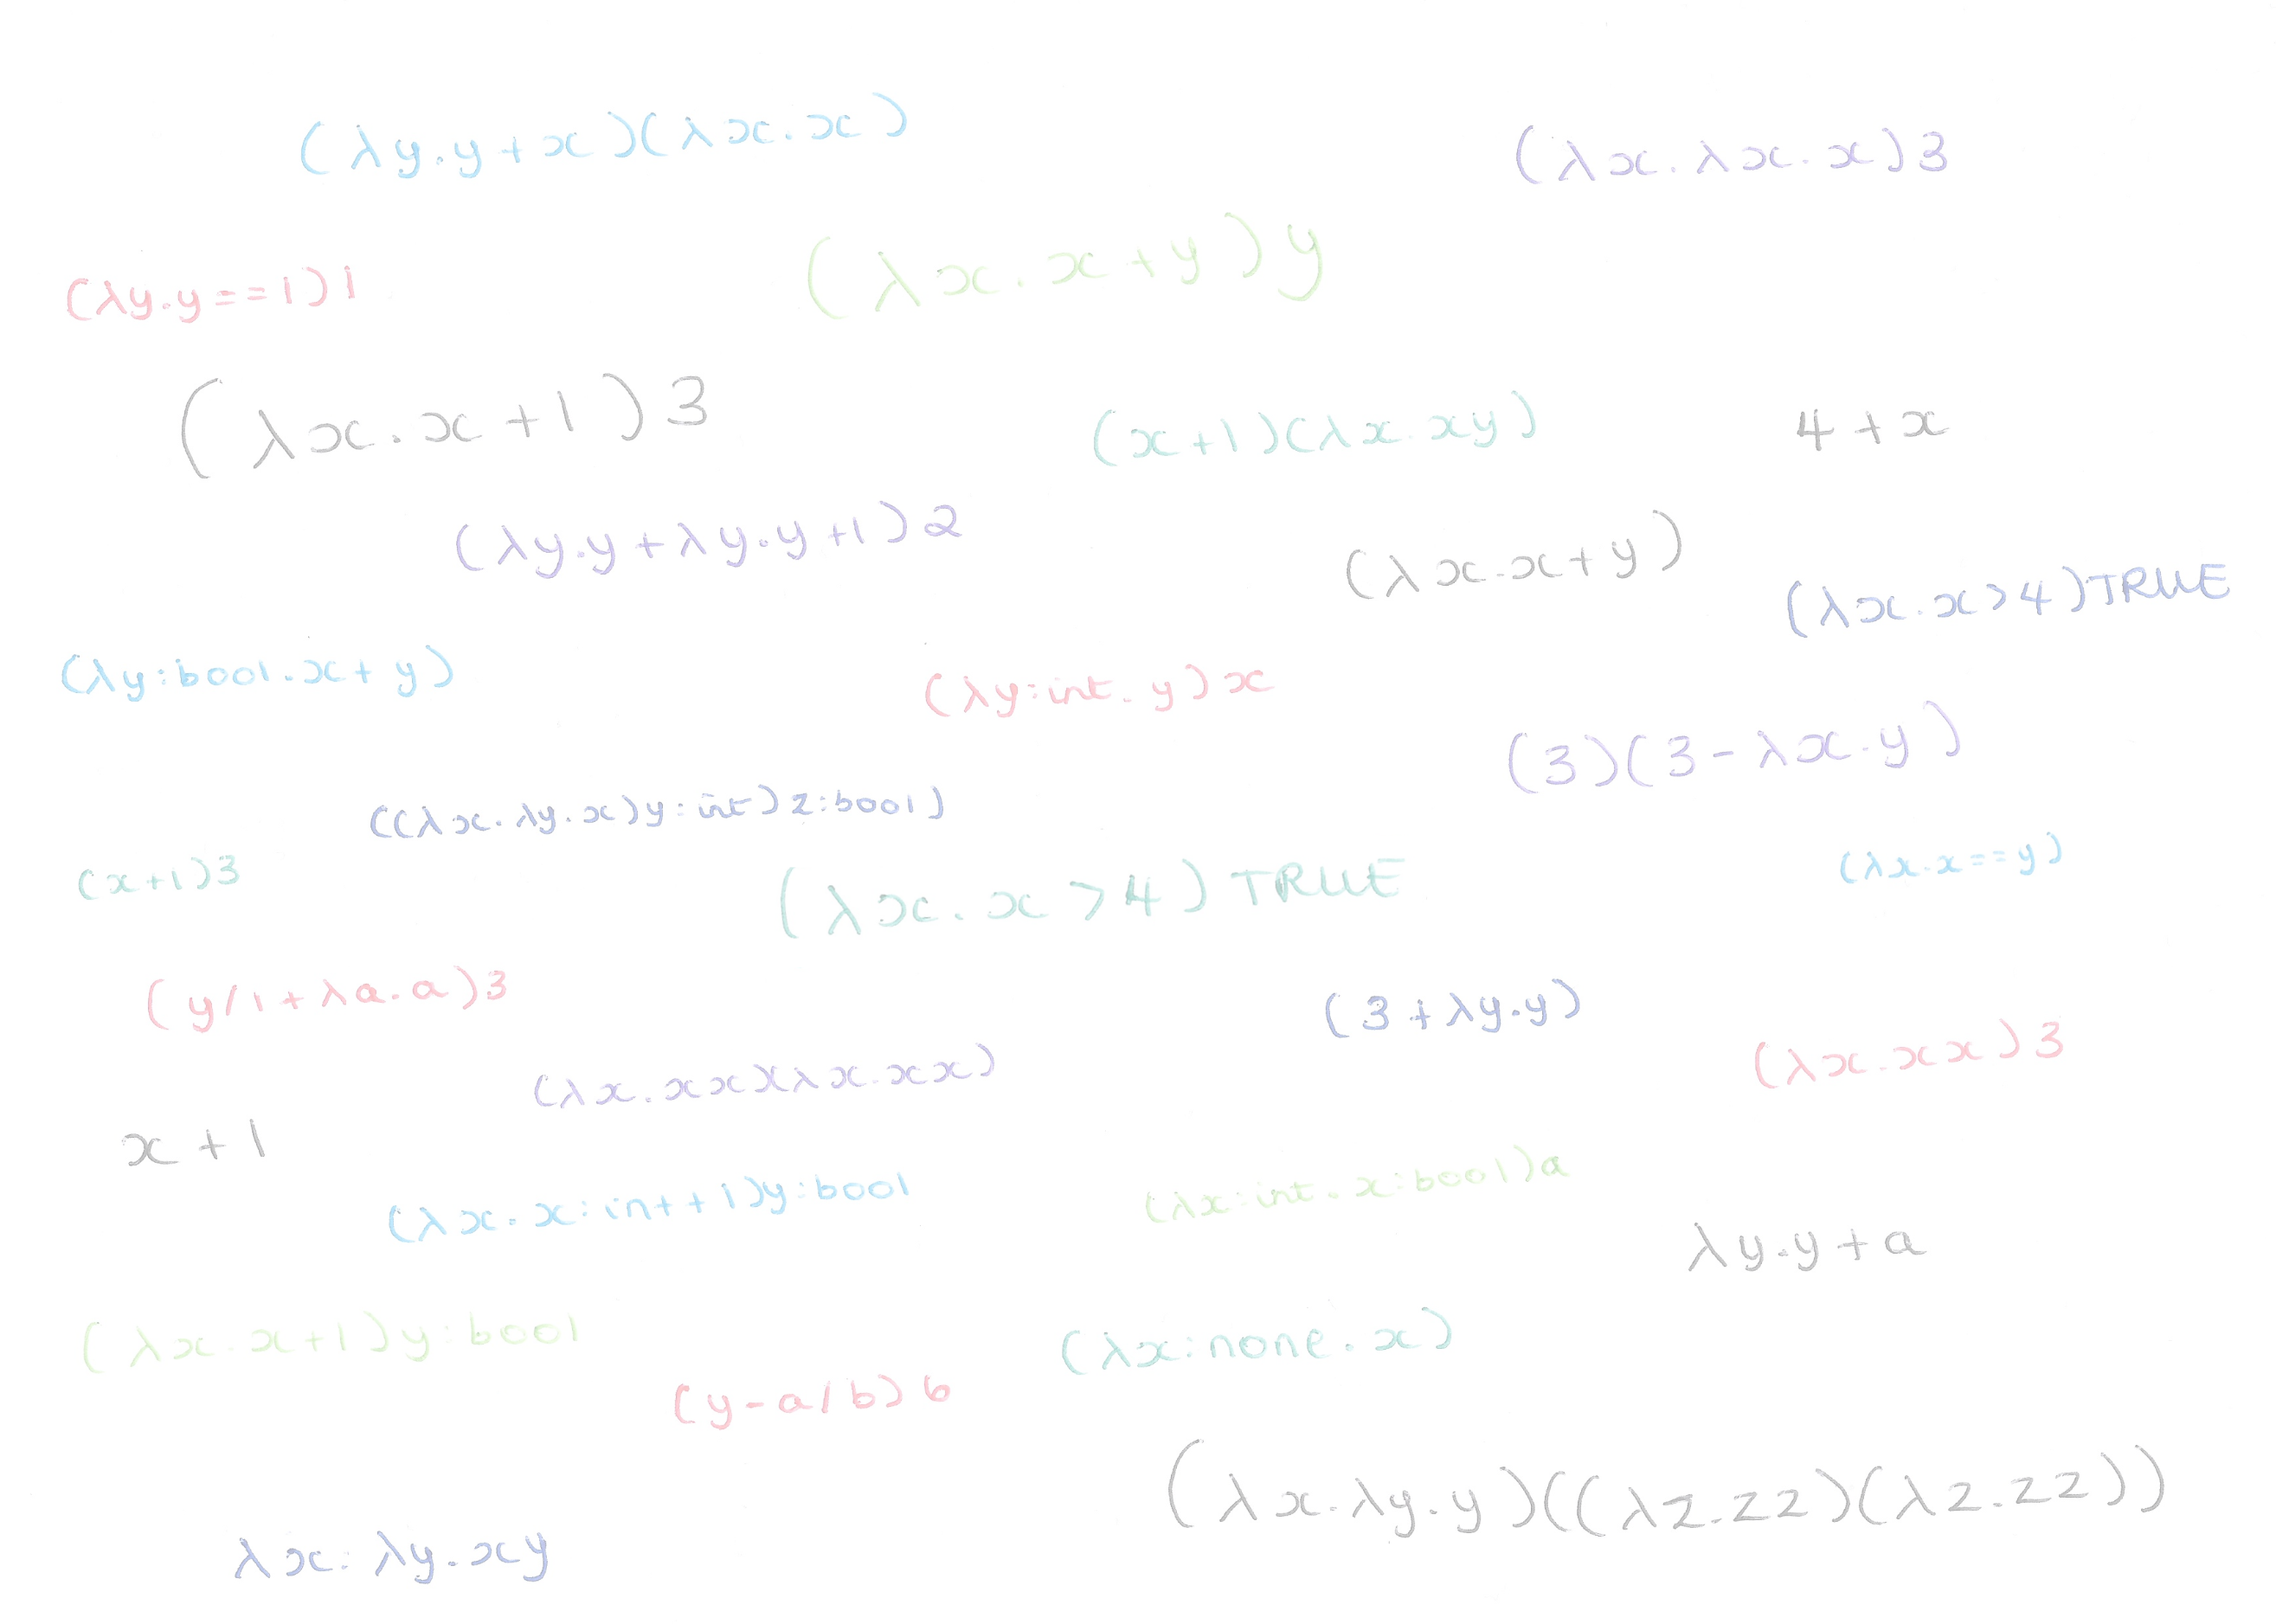 (λy.y+x)(λx.x)
(λx.λx.x)3
(λx.x+y)y
(λy.y==1)1
(λx.x+1)3
(x+1)(λx.xy)
4+x
(λy.y+λy.y+1)2
(λx.x+y)
(λx.x>4)TRUE
(λy:bool.x+y)
(λy:int.y)x
(3)(3-λx.y)
((λx.λy.x)y:int)z:bool)
(x+1)3
(λx.x>4)TRUE
(λx.x==y)
(y/1+λa.a)3
(3+λy.y)
(λx.xx)(λx.xx)
(λx.xx)3
x+1
(λx.x:int+1)y:bool
(λx:int.x:bool)a
λy.y+a
(λx.x+1)y:bool
(λx:none.x)
(y-a/b)6
(λx.λy.y)((λz.zz)(λz.zz))
λx.λy.xy